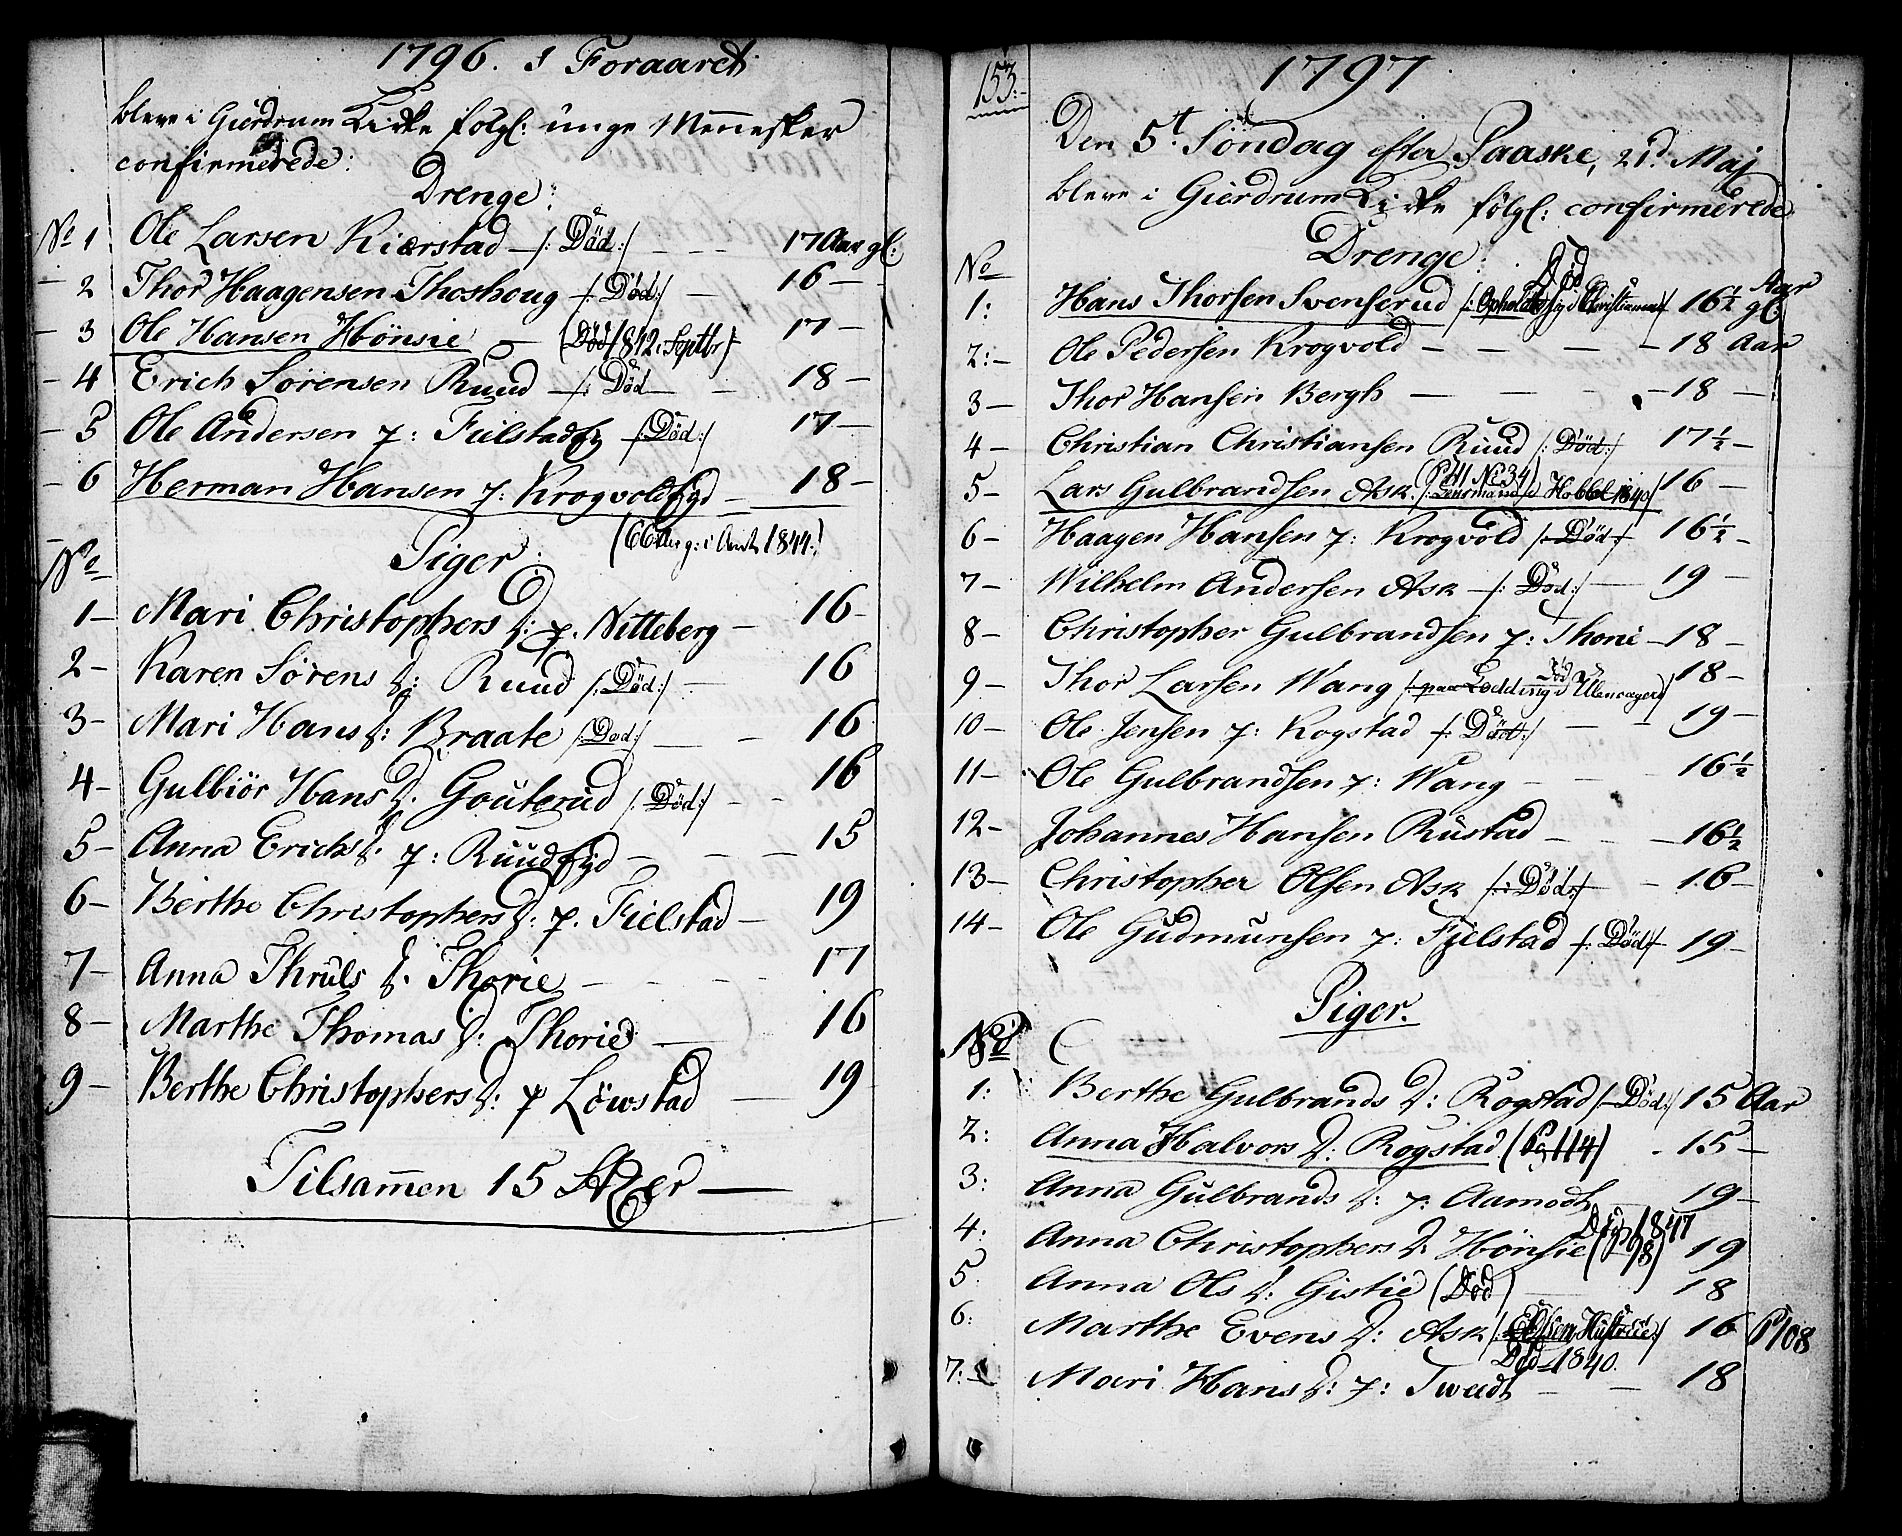 1796. I Foraaret
bleve i Gierdrum Kirke følgl: unge Mennesker
confirmerede:
Drenge:
No 1 Ole Larsen Kiærstad /: Död :/ 17 Aar gl:
2 Thor Haagensen Thoshoug /: Död :/ 16
3 Ole Hansen Hönsie (Död 1842. Septbr) 17
4 Erich Sørensen Ruud /: Död 18
5 Ole Andersen p: Fielstad /: Död :/ 17
6 Herman Hansen p: Krogvold Eyd 18
i Amt 1844
Piger:
No
1 Mari Christophers D: p. Nitteberg 16
2 Karen Sörens D: Ruud /: Död :/ 16
3 Mari Hans D: Braate /: Död :/ 16
4 Gulbiör Hans D. Gouterud /: Död :/ 16
5 Anna Erichs D. p: Ruud Eyd 15
6 Berthe Christophers D: p. Fielstad 19
7 Anna Thruls D. Thorie 17
8 Marthe Thomas D: Thorie 16
9 Berthe Christophers D: p Löwstad 19
Tilsammen 15 St[...]er
153
1797
Den 5t Söndag efter Paaske, 21d Maj
bleve i Gierdrum Kirke følgl: confirmerede
Drenge:
Död
No
1: Hans Thorsen Svenserud /: Opholdt sig i Christiania :/ 16 1/2 Aar gl:
2: Ole Pedersen Krogvold 18 Aar
3 Thor Hansen Bergh 18
4 Christian Christiansen Ruud /: Död :/ 17 1/2
(P 41 No 34)
5 Lars Gulbrandsen Ask /: Lensmand Hobbel 1840 :/ 16
6 Haagen Hansen p: Krogvold /: Död :/ 16 1/2
7 Wilhelm Andersen Ask /: Död :/ 19
8 Christopher Gulbrandsen p: Thorie 18
Död
9 Thor Larsen Wang /: paa Lodding i Ullensager :/ 18
10 Ole Jensen p: Kogstad /: Död :/ 19
11 Ole Gulbrandsen p: Wang 16 1/2
12 Johannes Hansen Rustad 16 1/2
13 Christopher Olsen Ask /: Död :/ 16
14 Ole Gudmunsen p: Fielstad /: Död :/ 19
Piger.
No
1: Berthe Gulbrands D: Rogstad /: Död :/ 15 Aar
2: Anna Halvors D: Rogstad (Pg 114) 15
3: Anna Gulbrands D: p: Aamodt 19
Död 1847
4: Anna Christophers D. Hönsie 19
5 Anna Ols D: Gistie (Död) 18
6: Marthe Evens D: Ask 16 P 108
Död 1840.
7: Mari Hans D: p: Tweidt 18